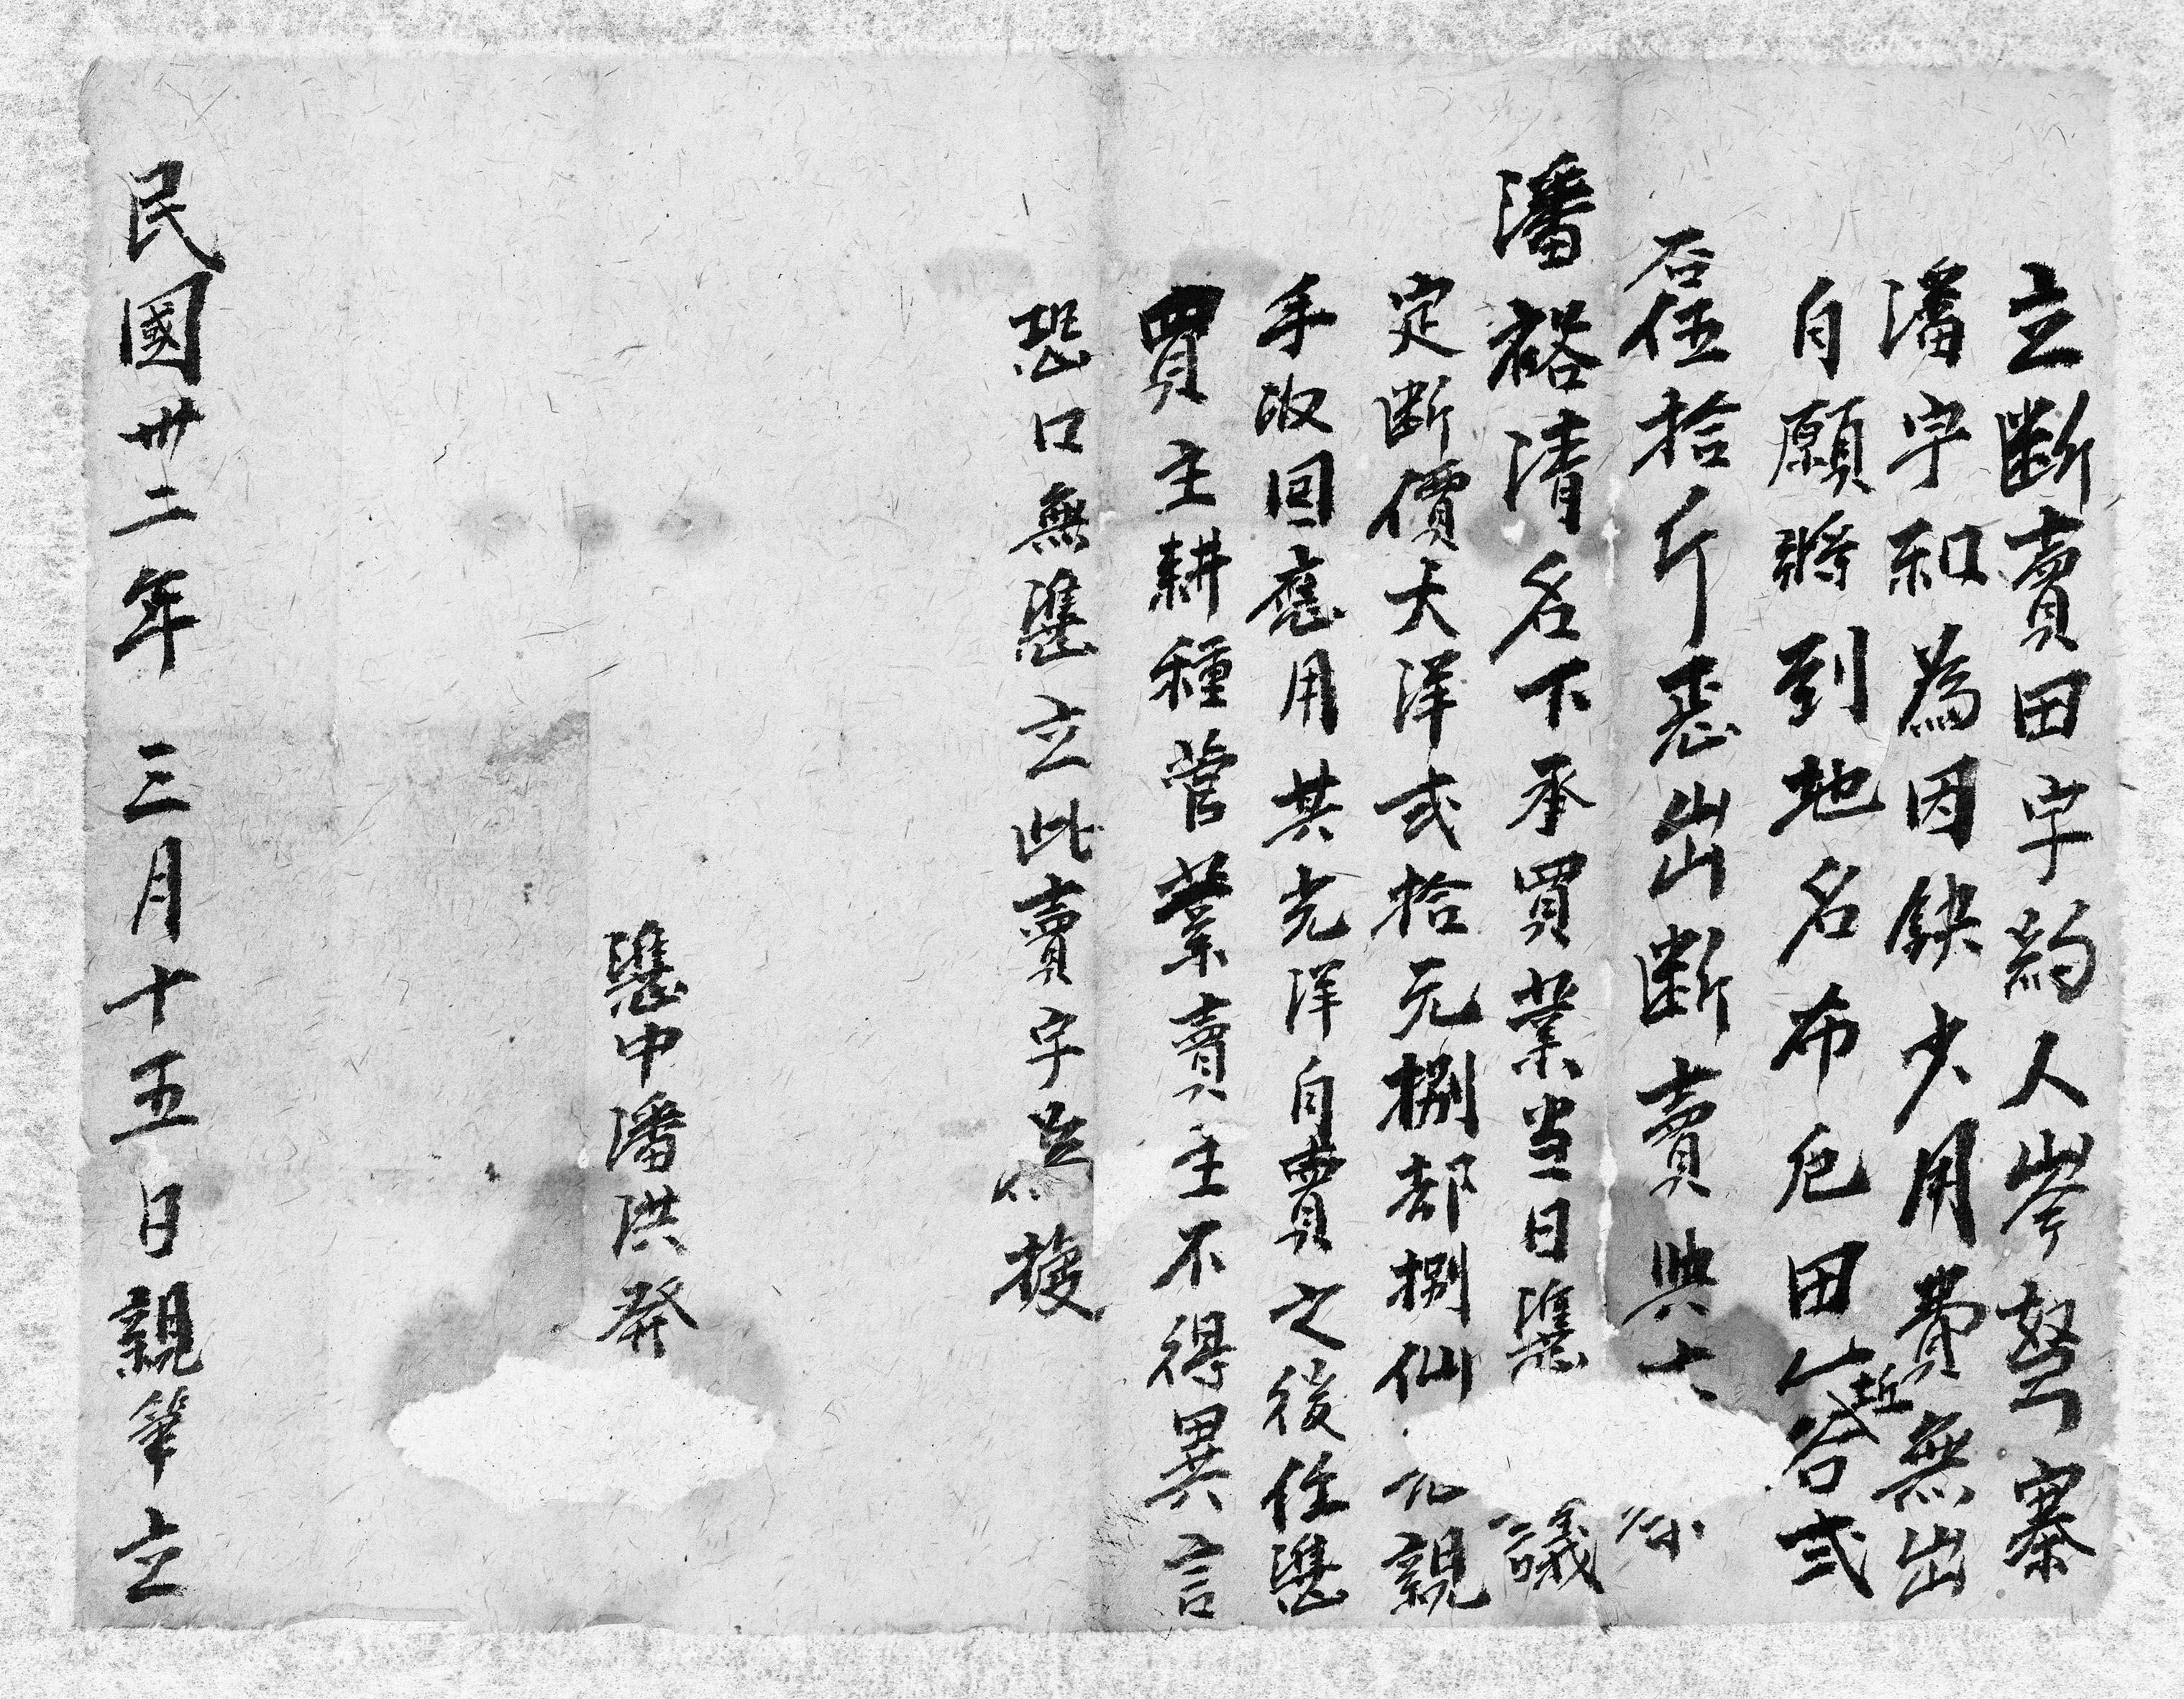 立斷賣田字約人岑努弓寨
潘宇和為因缺少用費無出
自願將到地名布卮田一坵谷弍
石伍拾斤悉出斷賣與
潘裕清名下承買業当日憑議
定斷價大洋弍拾元捌都捌仙親
手收回應用其光洋自賣之後任憑
買主耕種管業賣主不得異言
恐口無憑立此賣字是為據
憑中潘洪發
民國卅二年三月十五日親筆立